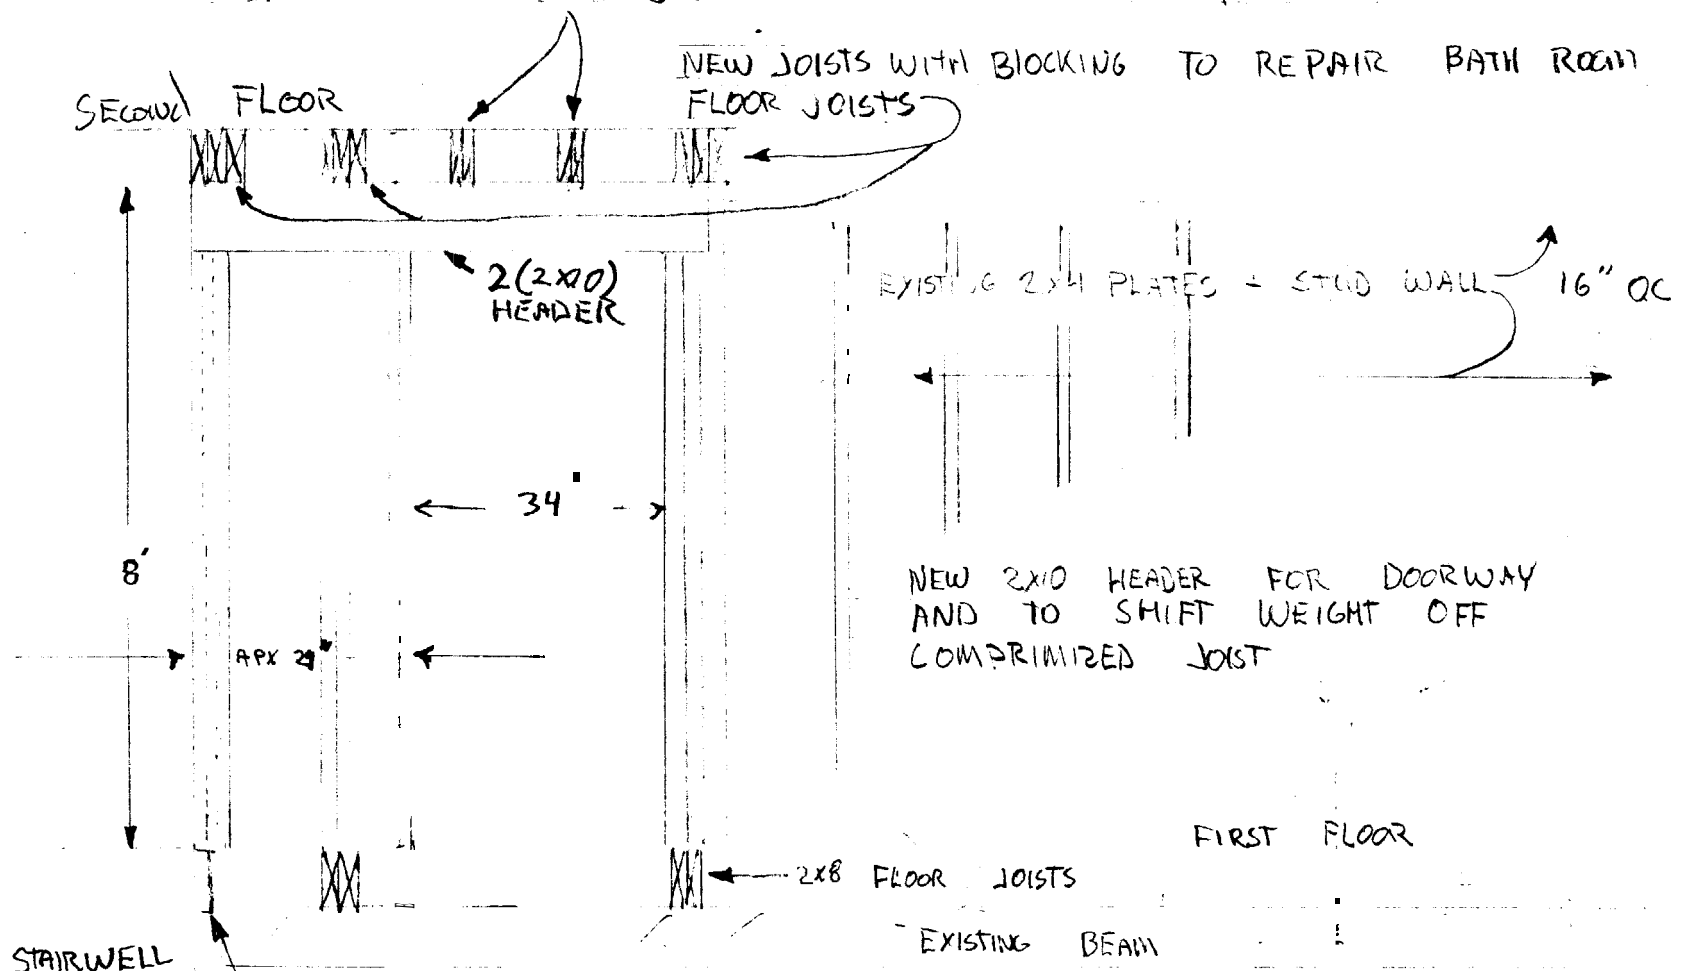 NEW JOISTS WITH BLOCKING TO REPAIR BATH ROOM
FLOOR JOISTS
SECOND FLOOR
2(2x10)
HEADER
EXISTING 2x4 PLATES - STUD WALL 16" OC
34"
8'
NEW 2x10 HEADER FOR DOORWAY
AND TO SHIFT WEIGHT OFF
COMPRIMIZED JOIST
APX
FIRST FLOOR
2x8 FLOOR JOISTS
EXISTING BEAM
STAIRWELL